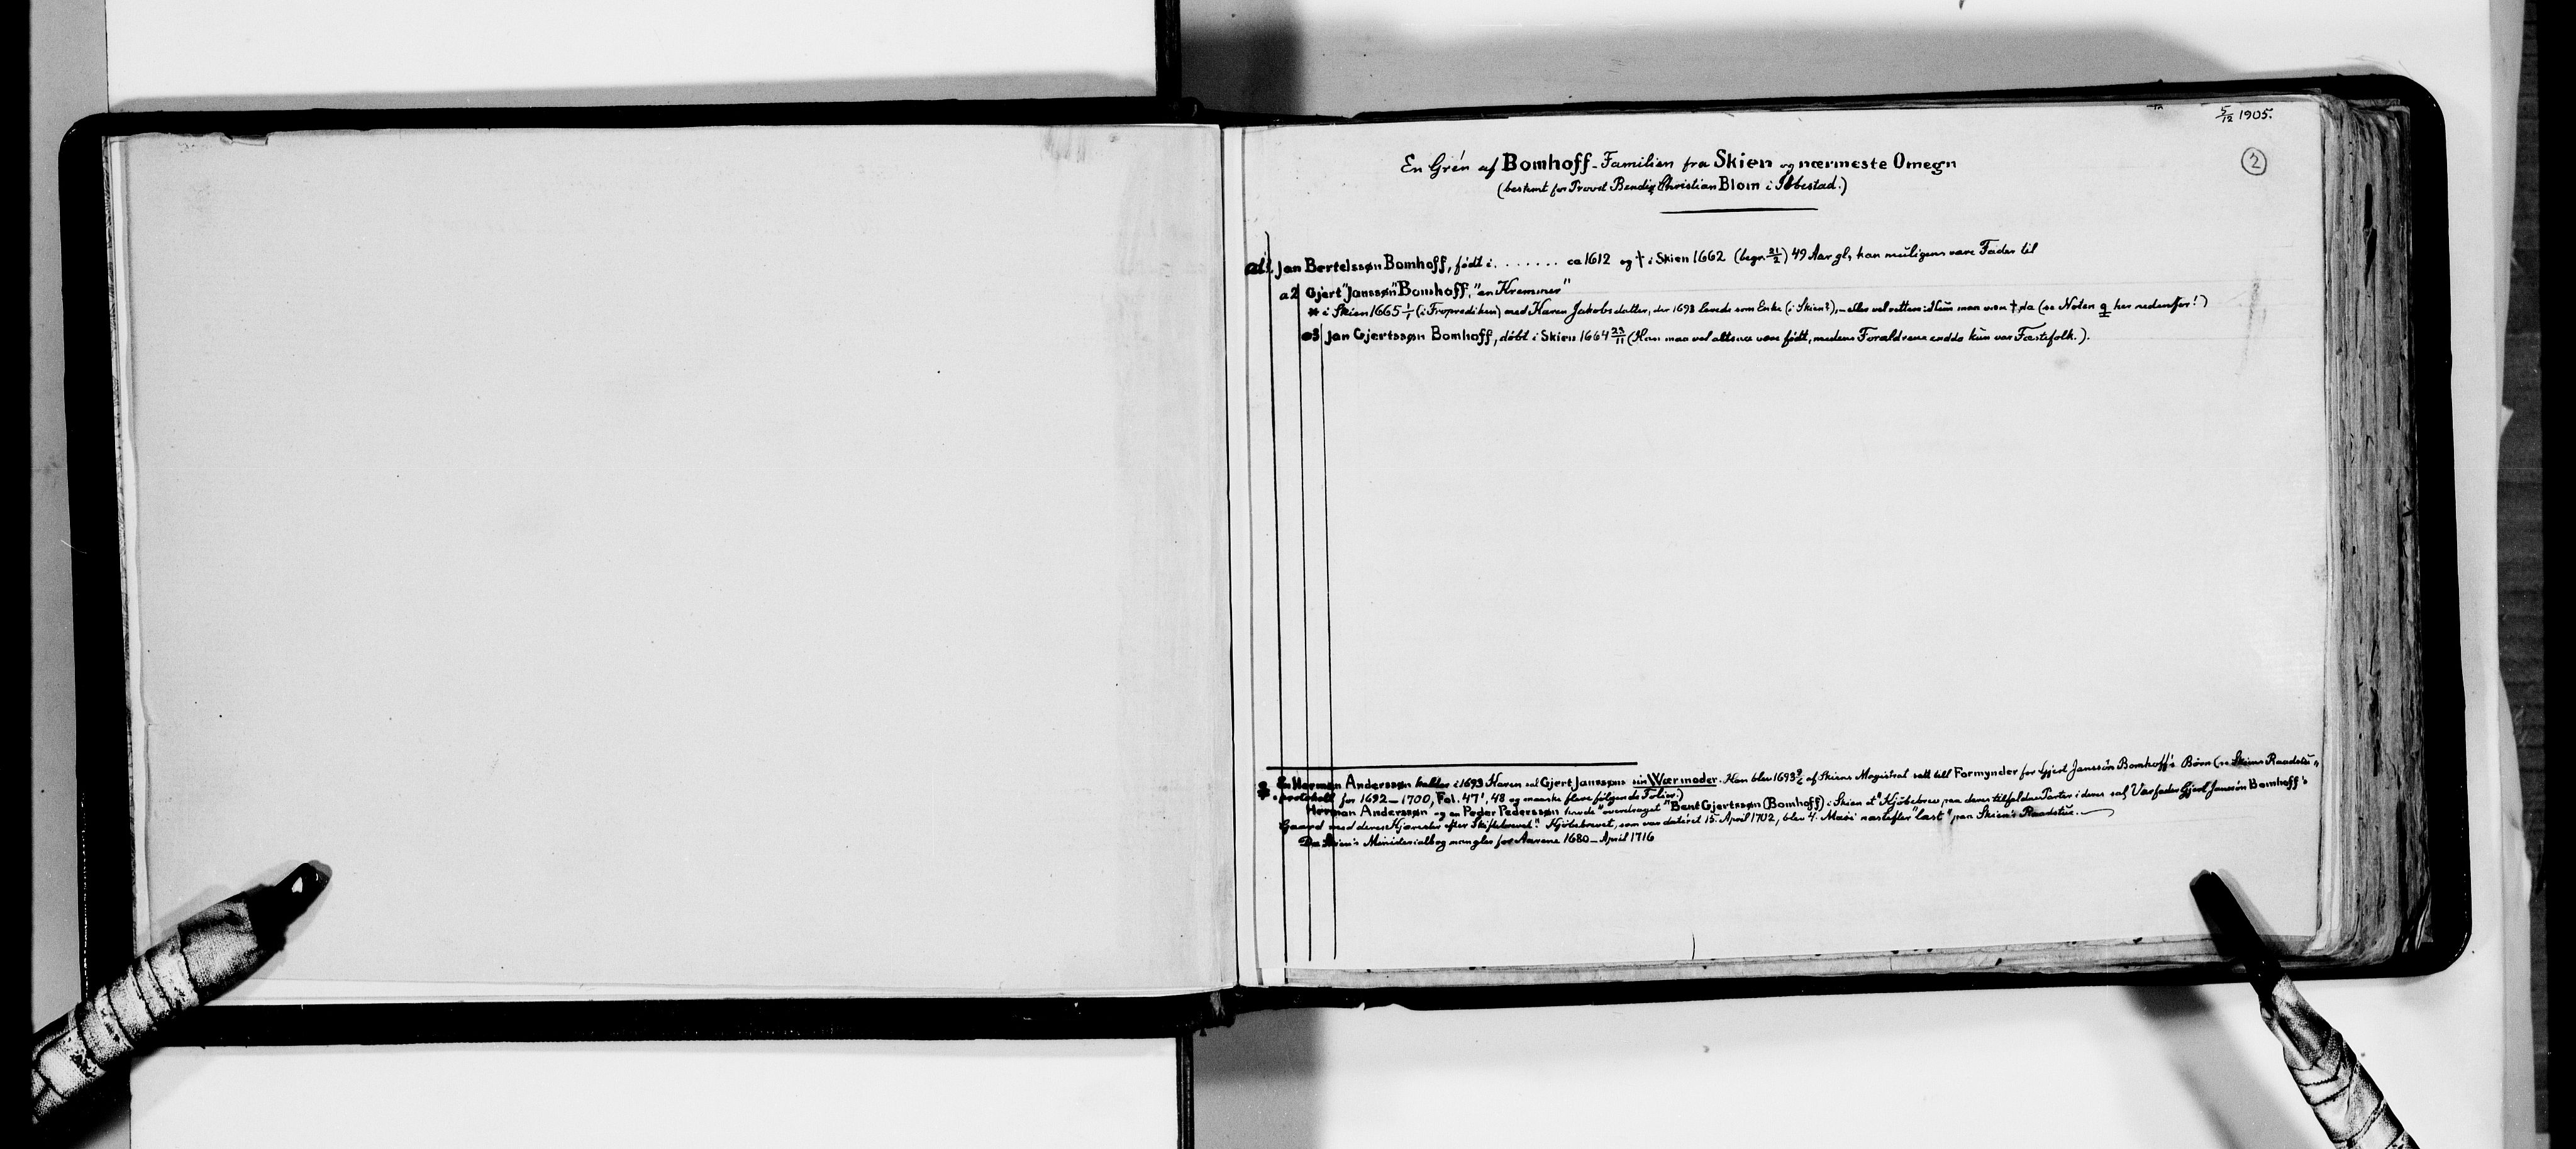 5/12 1905.
2
En Grén af Bomhoff-Familien fra Skien og nærmeste Omegn
(bestemt for Provst Bendix Christian Blom i Ibbestad.)
a1. Jan Bertelssøn Bomhoff, født i . . . . . . . ca 1612 og † i Skien 1662 (begr. 21/2) 49 Aar gl., kan muligens være Fader til
a2 Gjert "Janssøn" Bomhoff, "en Kremmer"
* i Skien 1665 1/1 (i Froprædiken) med Karen Jakobsdatter, der 1693 levede som Enke (i Skien?), – eller vel rettere: Hun maa være † da (se Noten q her nedenfor!)
a3 Jan Gjertssøn Bomhoff, døbt i Skien 1664 23/11 (Han maa vel altsaa være født, medens Forældrene endda kun var Fæstefolk.).
En Herman Anderssøn kalder i 1693 Karen sal Gjert Janssøns sin Værmoder. Han blev 1693 af Skiens Magistrat satt till Formynder for Gjert Janssön Bomhoff's Börn (se Skiens Raadstu=
protokoll for 1692–1700, Fol. 47', 48 og maaske flere følgende Folier.)
Herman Anderssøn og en Peder Pederssøn havde "overdraget" Bent Gjertssøn (Bomhoff) i Skien et "Kjöbebrev paa deres tilfaldne Parter i deres sal. Værfader Gjert Janssön Bomhoff's
Gaard med deres Kjærester efter Skiftebrevet." Kjöbebrevet, som var datéret 15. April 1702, blev 4. Maai næstefter "læst" paa Skien's Raadstue.
Da Skien's Ministerialbog mangler for Aarene 1680–April 1716